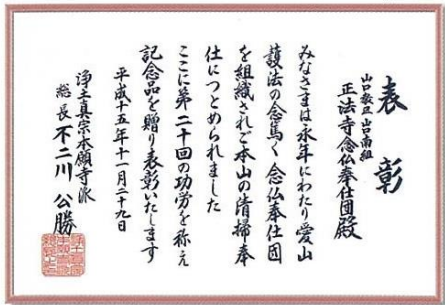 表彰
山口教区山口南組
正法寺念仏奉仕団殿
みなさまは永年にわたり愛山
護法の念篤く念仏奉仕団
を組織されご本山の清掃奉
仕につとめられました
ここに第二十回の功労を称え
記念品を贈り表彰いたします
平成十五年十一月二十九日
浄土真宗本願寺派
総長不二川公勝